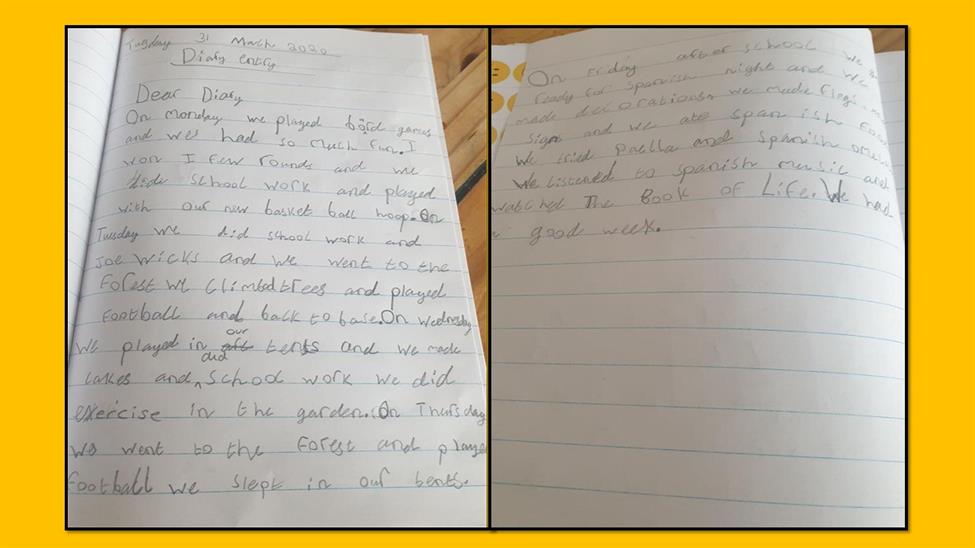 Tuesday 31 March 2020
Diary entry
Dear Diary
On monday we played bord games
and we had so much fun. I
won I few rounds and we
dide school work and played
with our new basket ball hoop. On
Tuesday we did school work and
Joe wicks and we went to the
Forest we climbed trees and played
football and back to base. On wednesday
we played in our tents and we made
cakes and did school work we did
exercise in the garden. On Thursday
we went to the Forest and played
football we slept in our tents.
On Friday after school we
ready for spanish night and we
made decorations. we made flags
signs and we ate spanish food
we tried paella and spanish
We listened to spanish music and
watched The Book of Life. We had
good week.